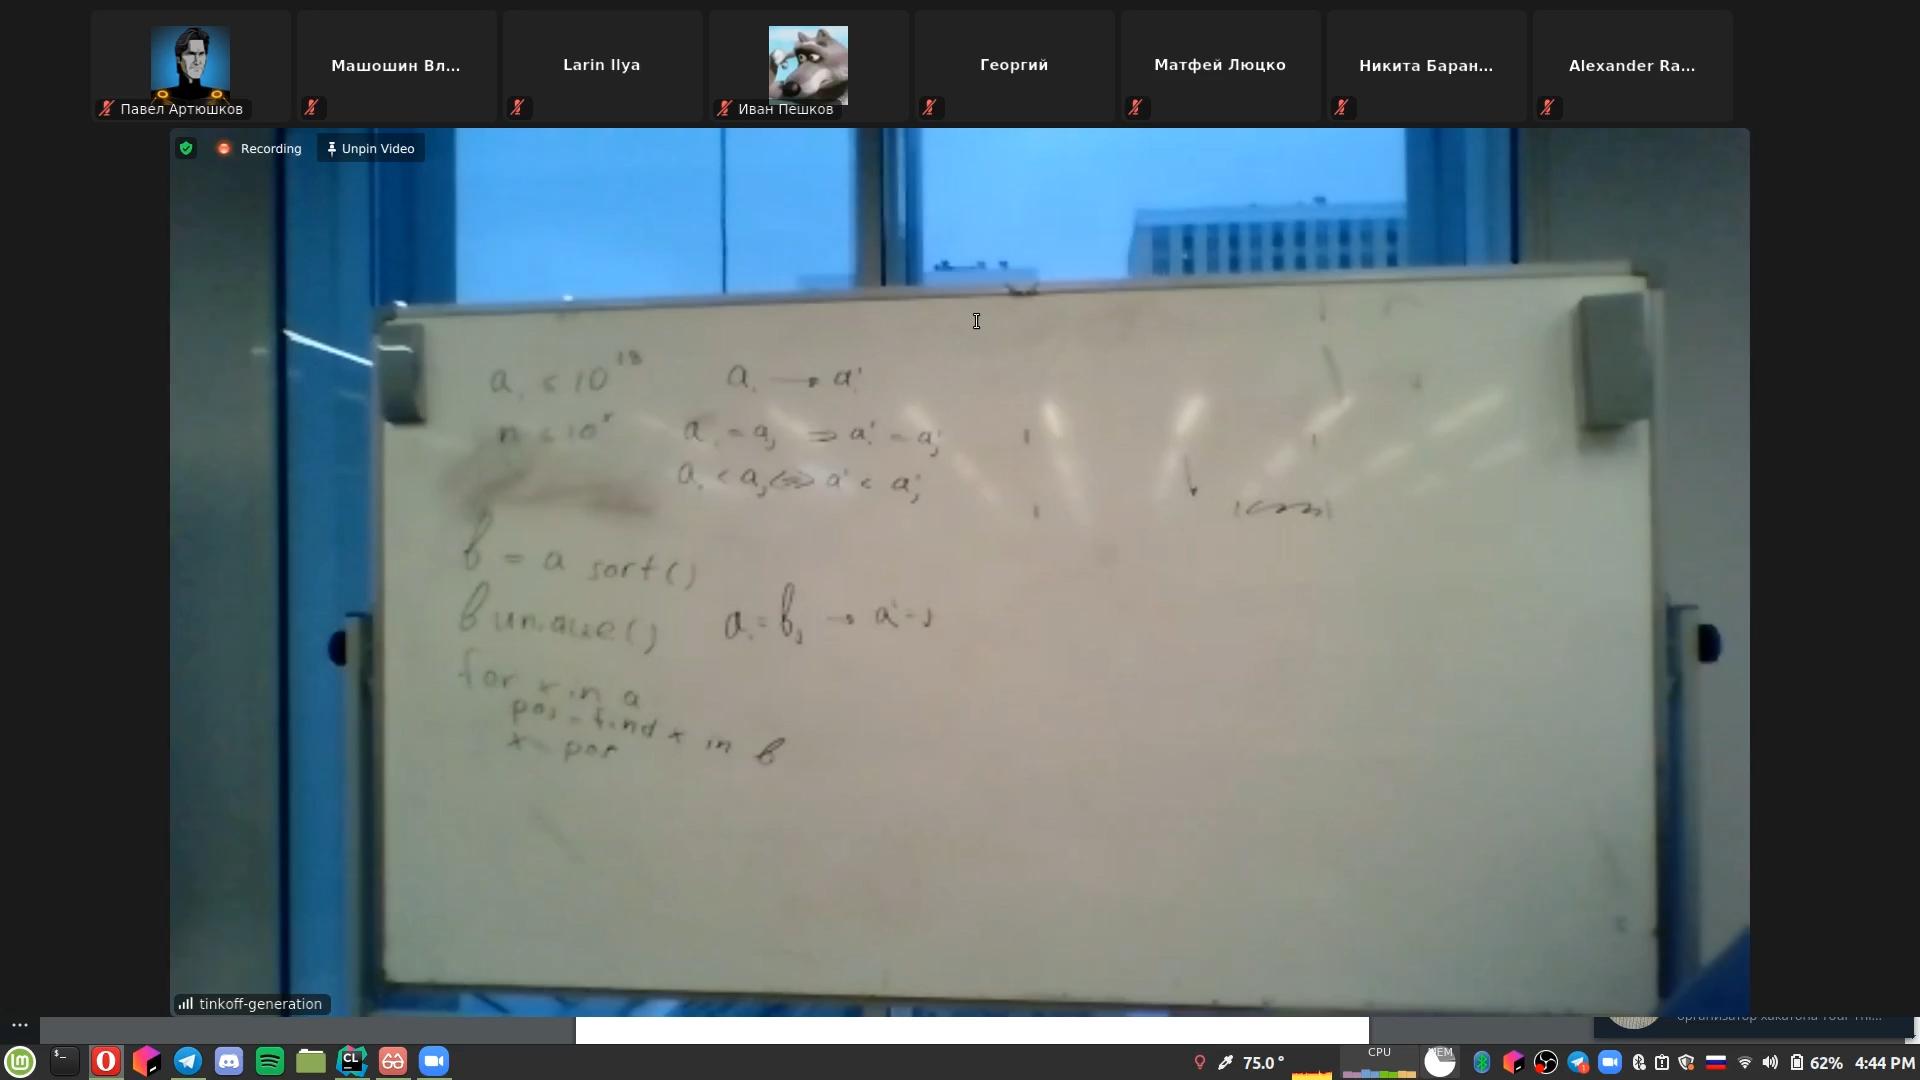 Павел Артюшков
Машошин Вл...
Larin Ilya
Иван Пешков
Георгий
Матфей Люцко
Никита Баран...
Alexander Ra...
Recording
Unpin Video
a_i ≤ 10^18 a_i → a_i'
n ≤ 10^5 a_i = a_j ⇒ a_i' = a_j'
a_i < a_j ⇔ a_i' < a_j'
b = a sort()
b unique() a_i = b_j → a_i' = j
for x in a
pos = find x in b
x = pos
tinkoff-generation
CL
75.0°
CPU
MEM
62%
4:44 PM